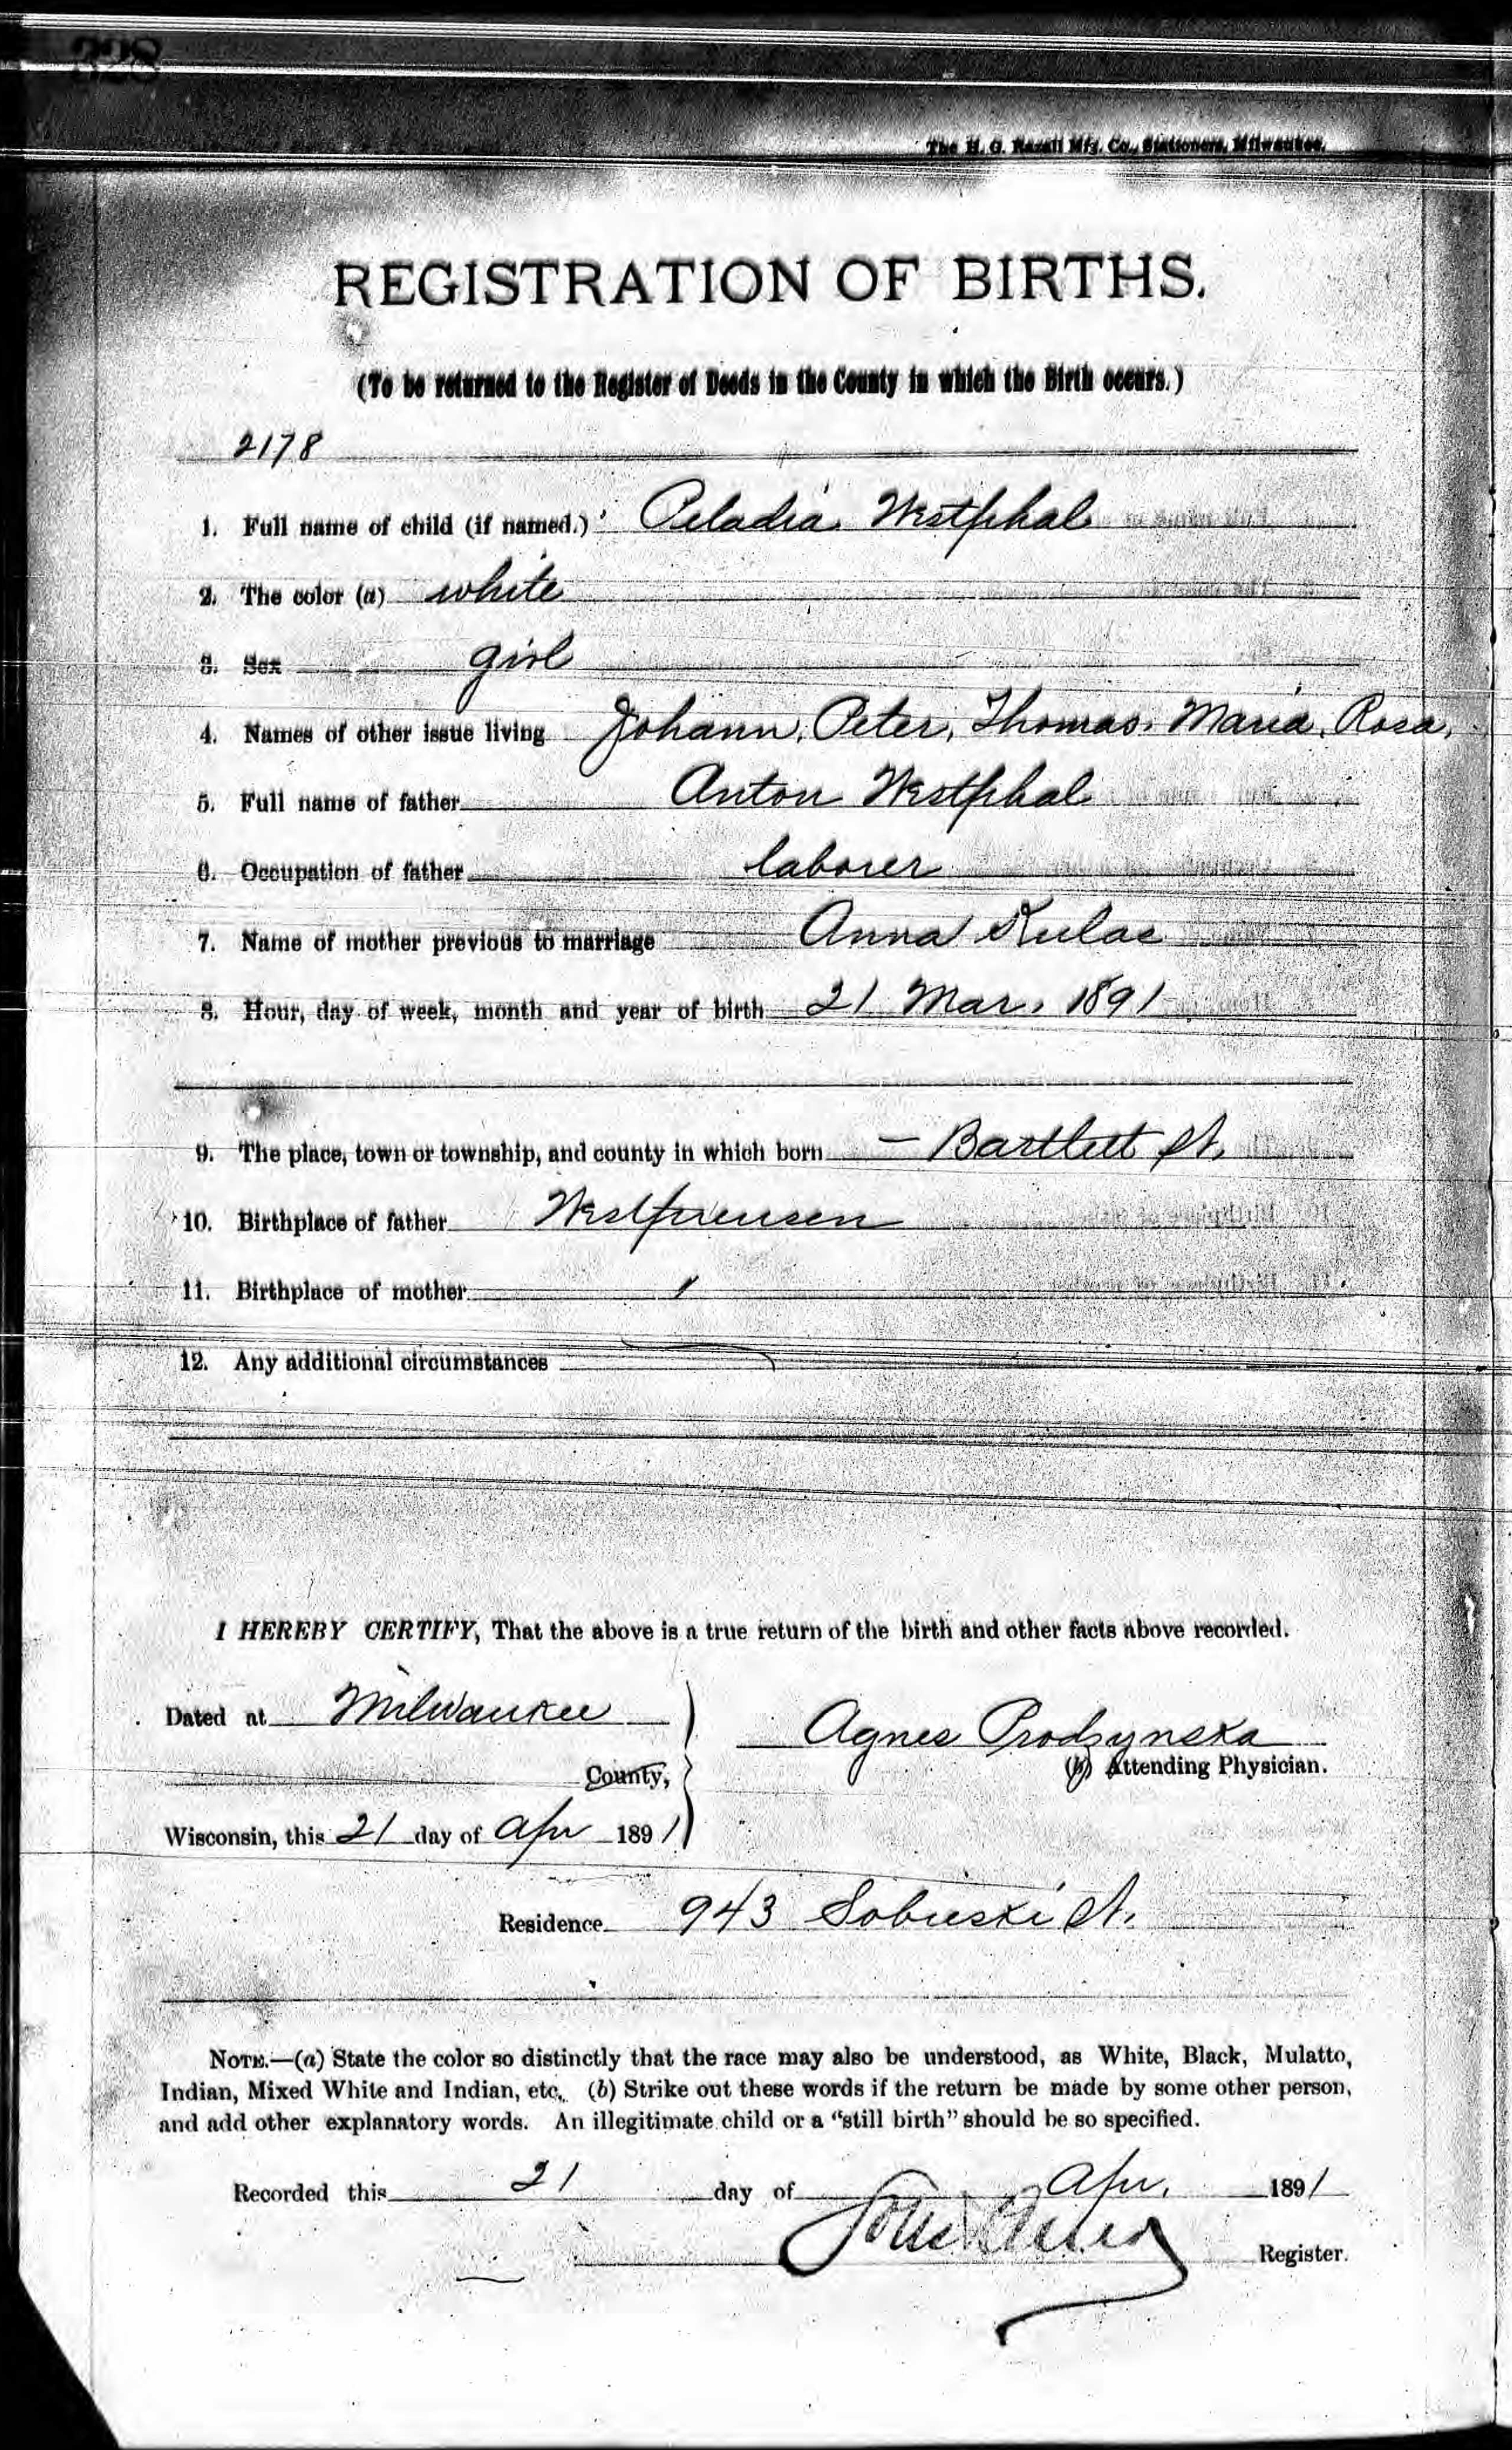 328
The H. G. Razall Mfg. Co., Stationers, Milwaukee.
REGISTRATION OF BIRTHS.
(To be returned to the Register of Deeds in the County in which the Birth occurs.)
2178
1. Full name of child (if named.) Peladia Westphal
2. The color (a) white
3. Sex girl
4. Names of other issue living Johann, Peter, Thomas, Maria, Rosa,
5. Full name of father Anton Westphal
6. Occupation of father laborer
7. Name of mother previous to marriage Anna Kulas
8. Hour, day of week, month and year of birth 21 Mar. 1891
9. The place, town or township, and county in which born — Bartlett St.
10. Birthplace of father Westpreusen
11. Birthplace of mother "
12. Any additional circumstances
I HEREBY CERTIFY, That the above is a true return of the birth and other facts above recorded.
Dated at Milwaukee
Agnes Prodzynska
County,
(b) Attending Physician.
Wisconsin, this 21 day of Apr 1891
Residence 943 Sobieski St.
NOTE.—(a) State the color so distinctly that the race may also be understood, as White, Black, Mulatto,
Indian, Mixed White and Indian, etc. (b) Strike out these words if the return be made by some other person,
and add other explanatory words. An illegitimate child or a "still birth" should be so specified.
Recorded this 21 day of Apr. 1891
Register.